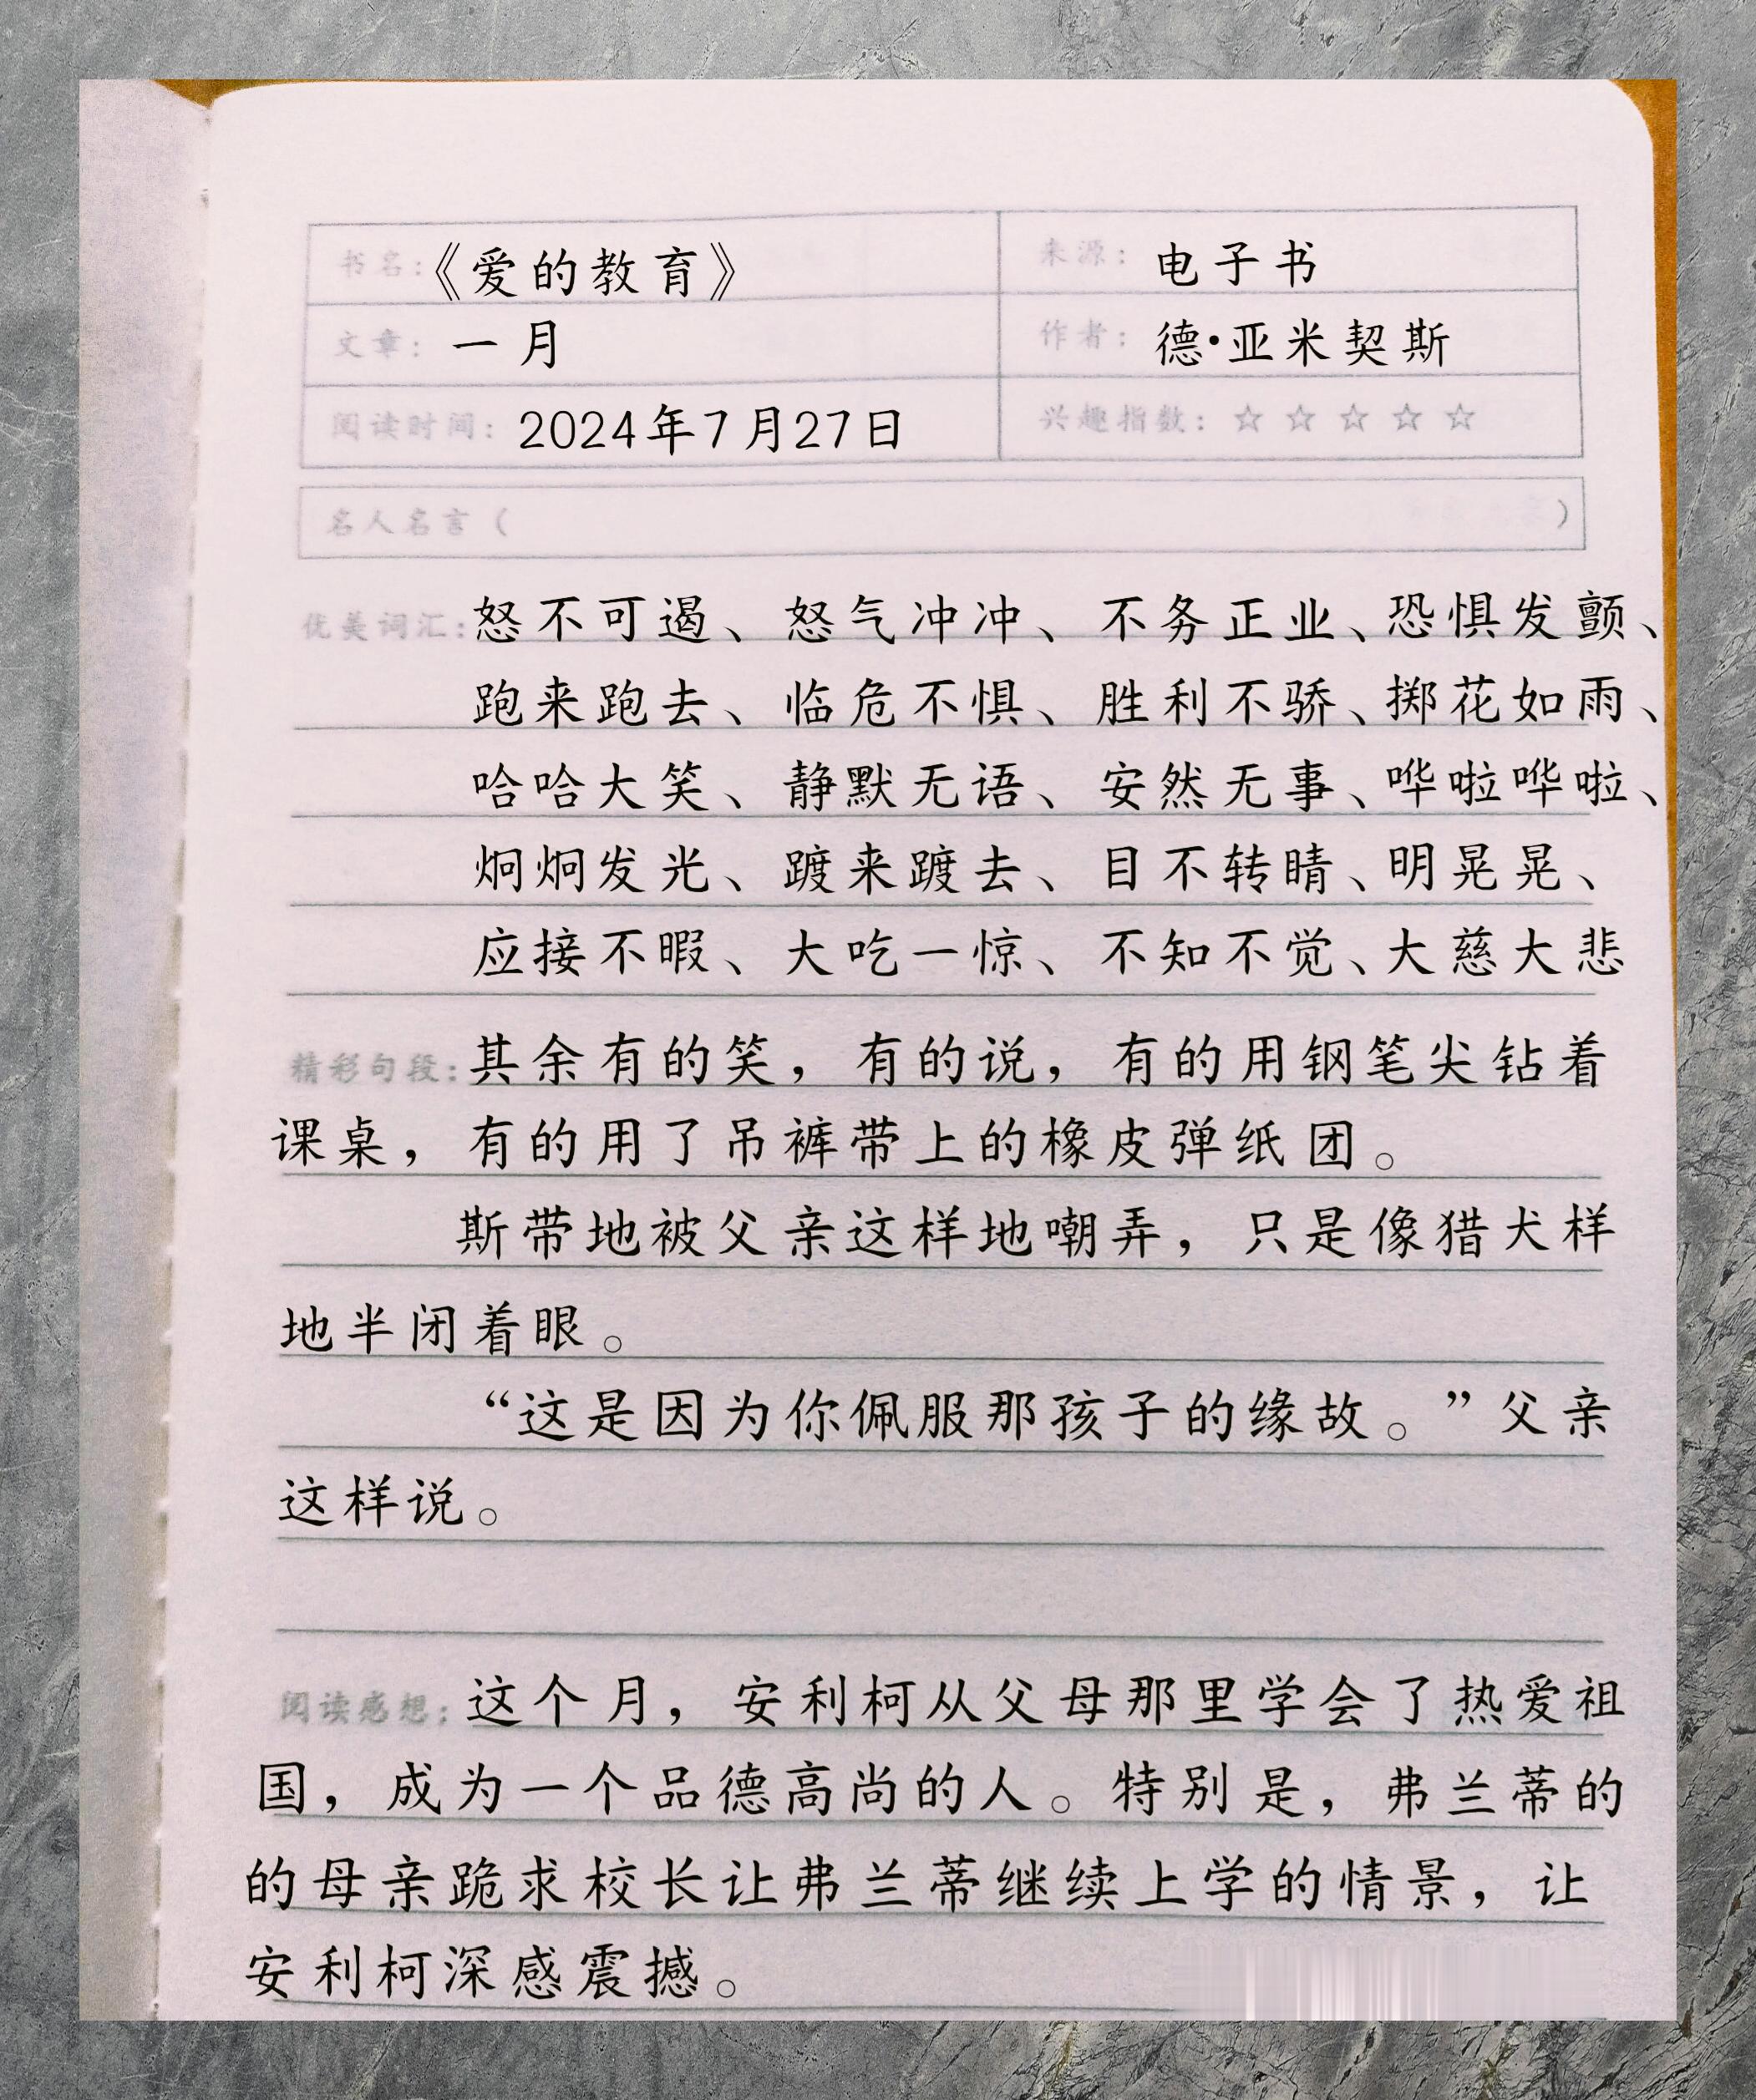 书名：《爱的教育》 来源： 电子书
文章： 一月 作者： 德·亚米契斯
阅读时间： 2024年7月27日 兴趣指数： ☆ ☆ ☆ ☆ ☆
名人名言（ ）
优美词汇：怒不可遏、怒气冲冲、不务正业、恐惧发颤、
跑来跑去、临危不惧、胜利不骄、掷花如雨、
哈哈大笑、静默无语、安然无事、哗啦哗啦、
炯炯发光、踱来踱去、目不转睛、明晃晃、
应接不暇、大吃一惊、不知不觉、大慈大悲
精彩句段：其余有的笑，有的说，有的用钢笔尖钻着
课桌，有的用了吊裤带上的橡皮弹纸团。
斯带地被父亲这样地嘲弄，只是像猎犬样
地半闭着眼。
“这是因为你佩服那孩子的缘故。”父亲
这样说。
阅读感想：这个月，安利柯从父母那里学会了热爱祖
国，成为一个品德高尚的人。特别是，弗兰蒂的
的母亲跪求校长让弗兰蒂继续上学的情景，让
安利柯深感震撼。